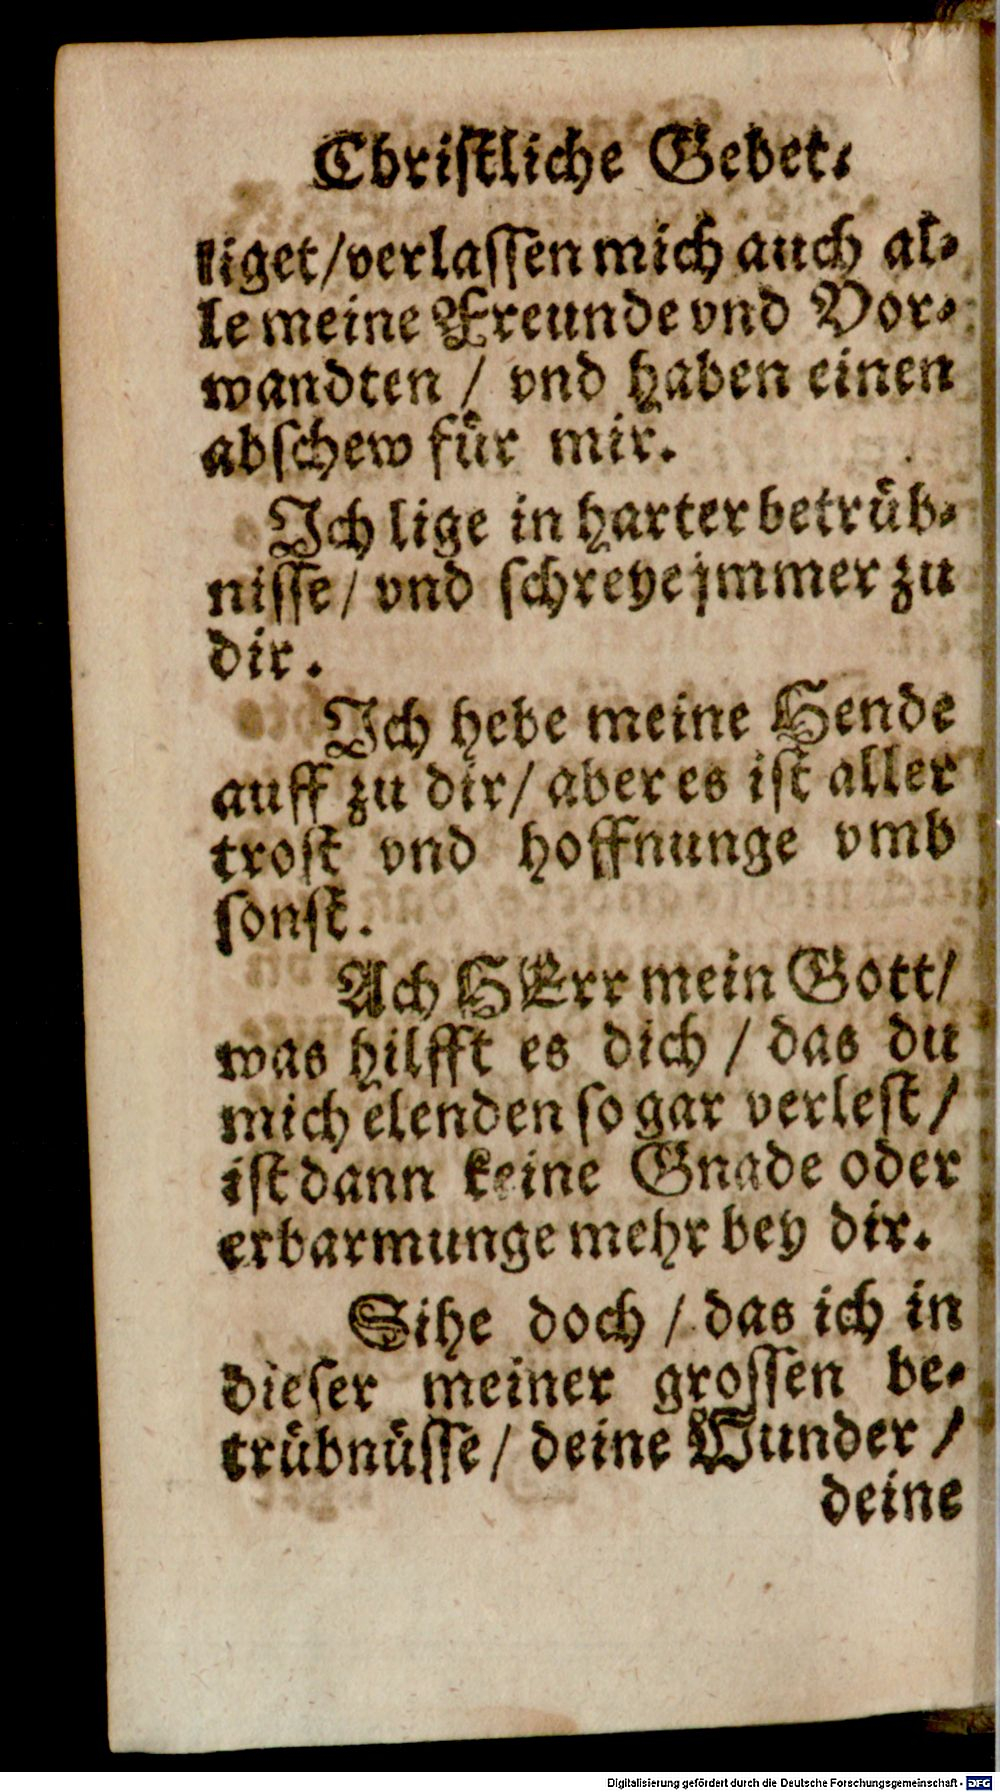 Christliche Gebet⸗
liget/verlassen mich auch al⸗
le meine Freunde vnd Vor⸗
wandten / vnd haben einen
abschew für mir.
Ich lige in harter betrüb⸗
nisse/ vnd schreye jmmer zu
dir.
Ich hebe meine Hende
auff zu dir/ aber es ist aller
trost vnd hoffnunge vmb
sonst.
Ach HErr mein Gott/
was hilfft es dich / das du
mich elenden so gar verlest/
ist dann keine Gnade oder
erbarmunge mehr bey dir.
Sihe doch / das ich in
dieser meiner grossen be⸗
trübnüsse/ deine Wunder /
deine
Digitalisierung gefördert durch die Deutsche Forschungsgemeinschaft - DFG